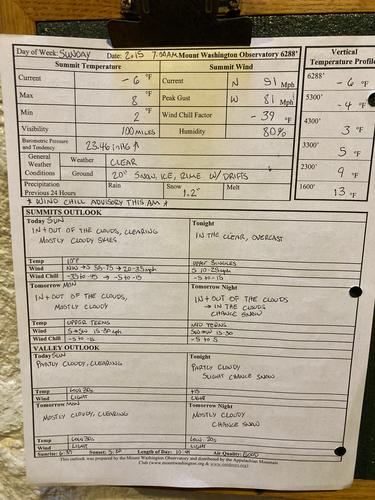 Day of Week: SUNDAY Date: 2-15 7:00AM Mount Washington Observatory 6288'
Summit Temperature Summit Wind
Current -6 °F Current N 91 Mph
Max 8 °F Peak Gust W 81 Mph
Min °F Wind Chill Factor -39 °F
Visibility 100 MILES Humidity 80%
Barometric Pressure and Tendency 23.46 inHG ↑
General Weather Conditions Weather CLEAR
Ground 20" SNOW, ICE, RIME W/ DRIFTS
Precipitation Previous 24 Hours Rain Snow 1.2" Melt
* WIND CHILL ADVISORY THIS AM *
Vertical
Temperature Profile
6288' -6 °F
5300' -4 °F
4300' 3 °F
3300' 5 °F
2300' 9 °F
1600' 13 °F
SUMMITS OUTLOOK
Today SUN Tonight
IN + OUT OF THE CLOUDS, CLEARING IN THE CLEAR, OVERCAST
MOSTLY CLOUDY SKIES
Temp 10°F UPPER SINGLES
Wind NW → S 55-75 → 20-35 mph S 10-25 mph
Wind Chill -35 to -45 → -5 to -15 -5 to -15
Tomorrow MON Tomorrow Night
IN + OUT OF THE CLOUDS, IN + OUT OF THE CLOUDS
MOSTLY CLOUDY → IN THE CLOUDS
CHANCE SNOW
Temp UPPER TEENS MID TEENS
Wind S → SW 15-30 mph SW → W 15-30
Wind Chill -5 to -15 -5 to 5
VALLEY OUTLOOK
Today SUN Tonight
PARTLY CLOUDY, CLEARING PARTLY CLOUDY
SLIGHT CHANCE SNOW
Temp LOW 30s
Wind LIGHT LIGHT
Tomorrow MON Tomorrow Night
MOSTLY CLOUDY, CLEARING MOSTLY CLOUDY
CHANCE SNOW
Temp LOW 30s LOW 20s
Wind LIGHT LIGHT
Sunrise: Sunset: Length of Day: Air Quality: GOOD
This outlook was prepared by the Mount Washington Observatory and distributed by the Appalachian Mountain
Club (www.mountwashington.org & www.outdoors.org)